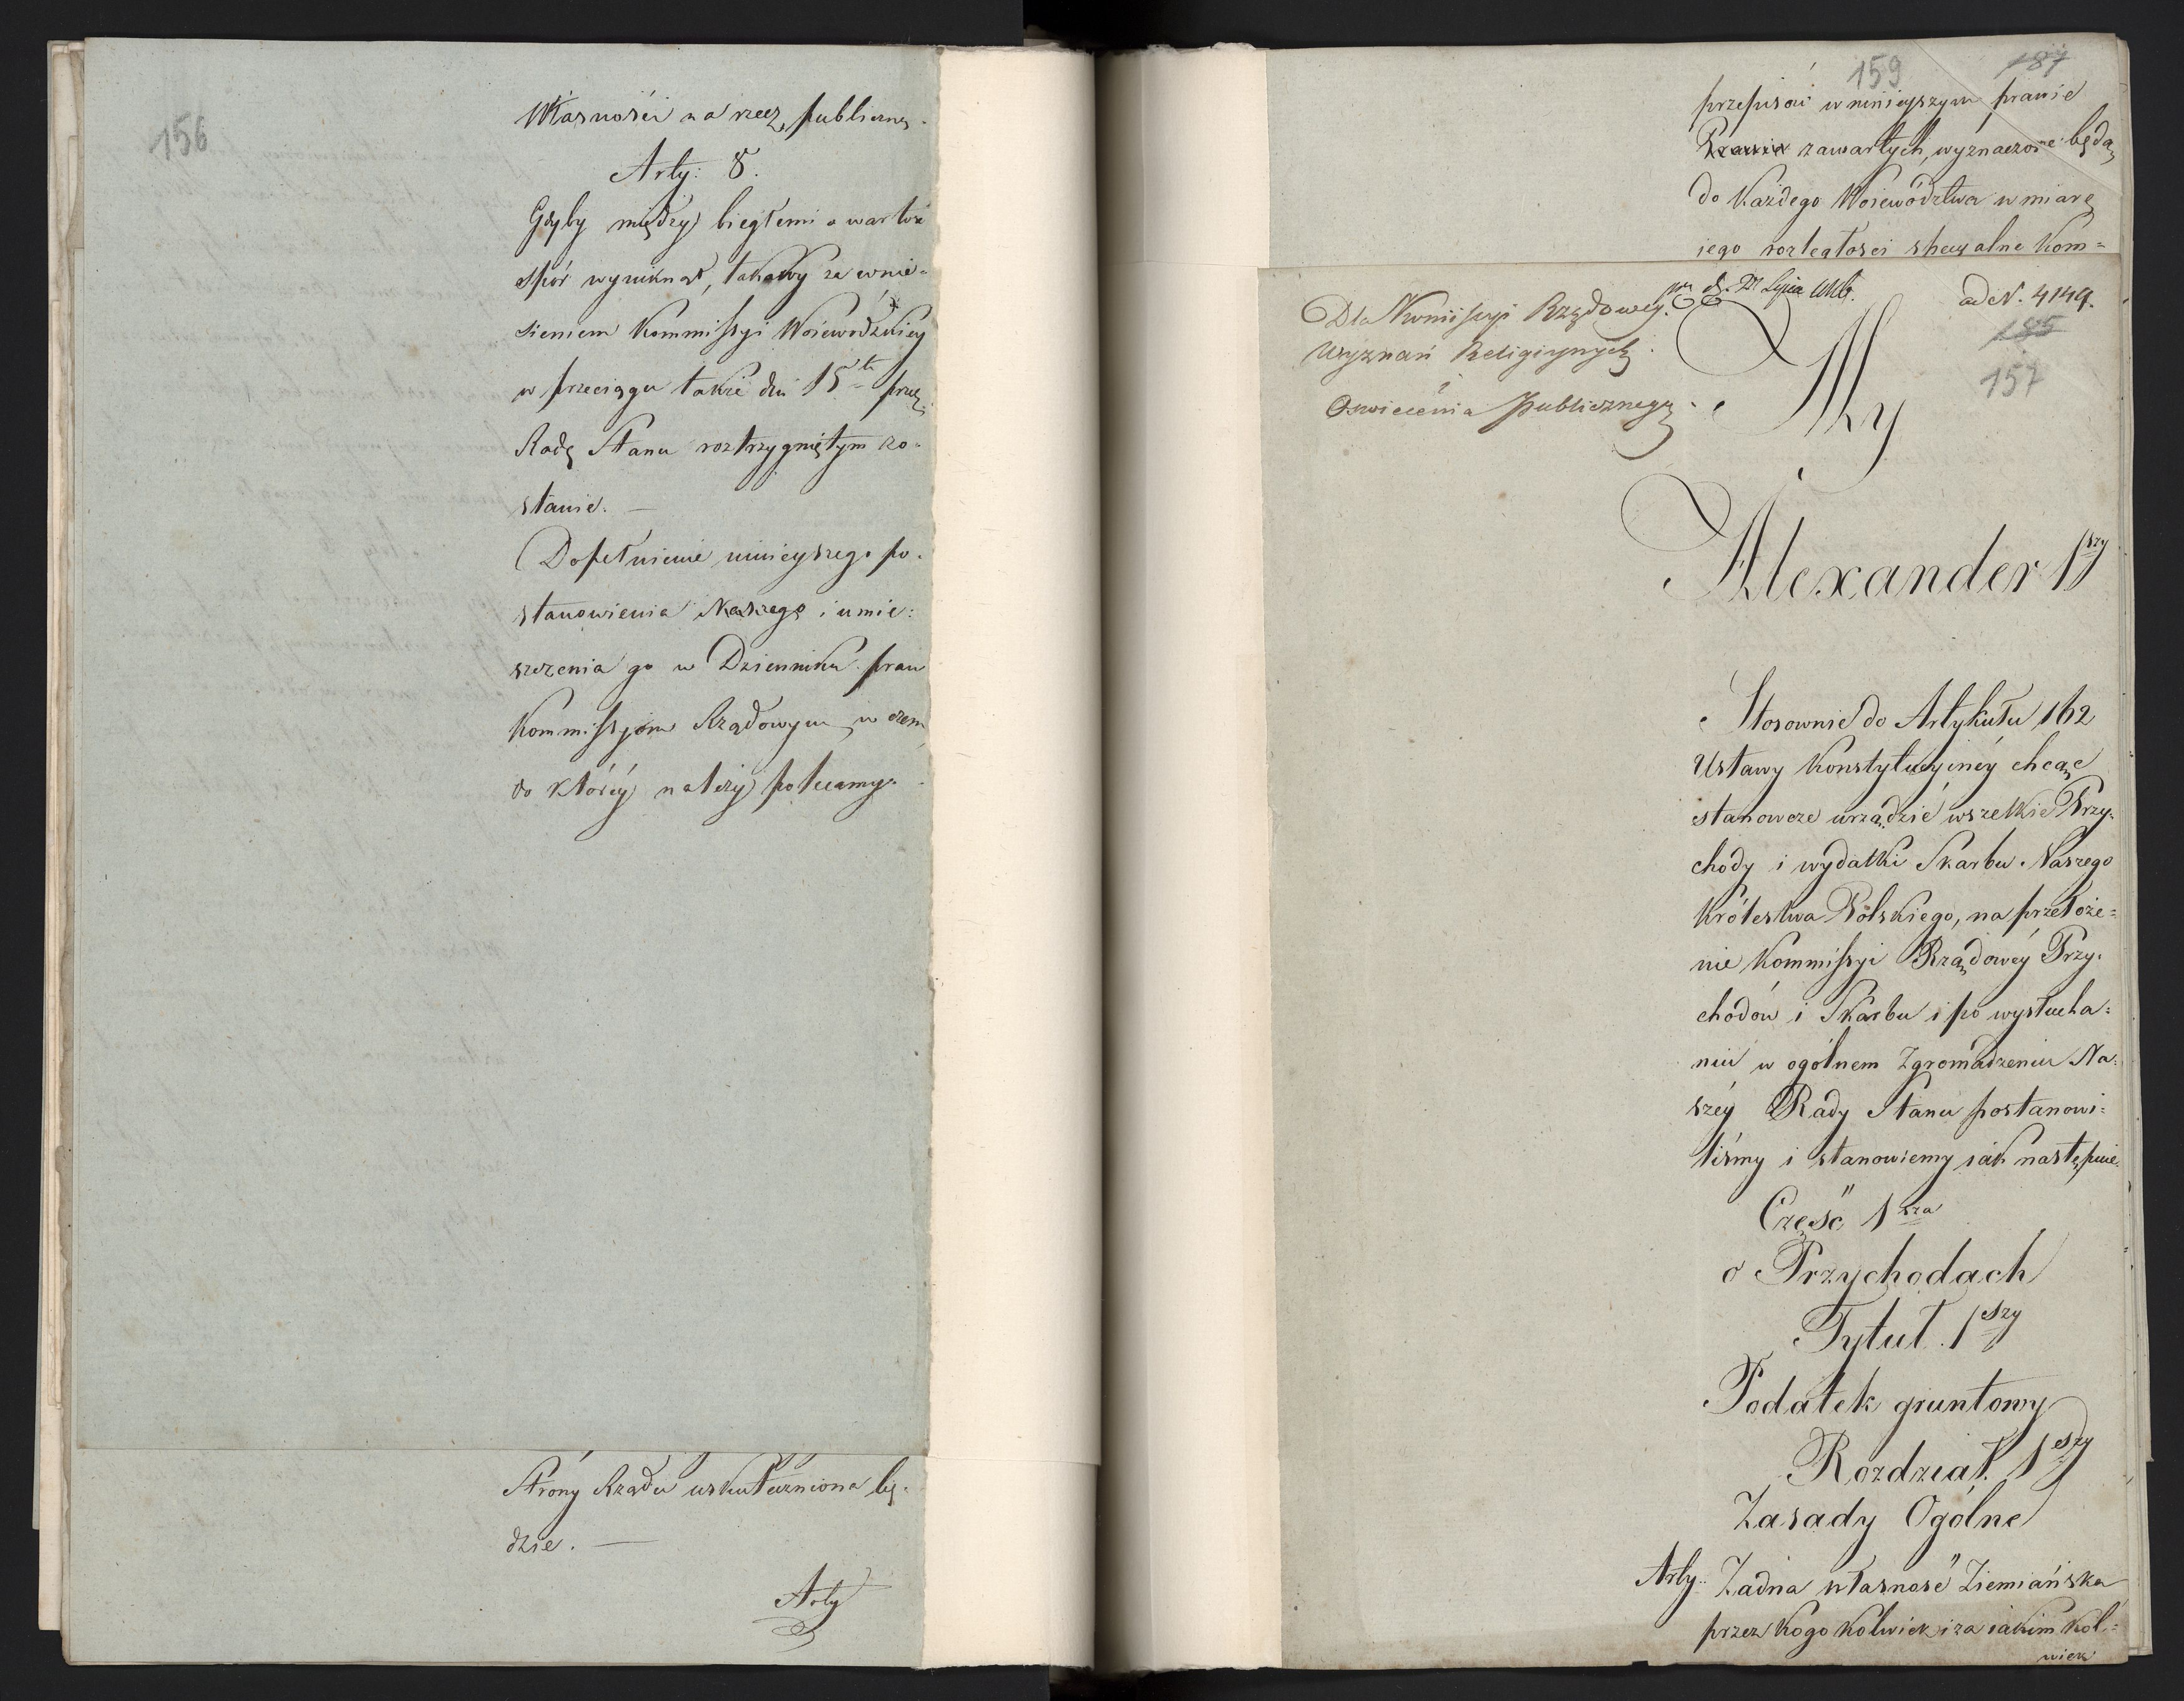 156
Własności na rzecz publiczną.
Arty: 8.
Gdyby między biegłemi o wartość
spór wyniknął, takowy za wnie-
sieniem Kommissyi Woiewodzkiey
w przeciągu także dni 15tu przez
Radę Stanu roztrzygniętym zo-
stanie. —
Dopełnienie ninieyszego po-
stanowienia Naszego i umie:
szczenia go w Dzienniku praw
Kommissyom Rządowym w czem
do któréy należy polecamy.
Strony Rządu uskuteczniona bę-
dzie. —
Arty
159 187
przepisów w ninieyszym prawie
zawartych, wyznaczone będą
do Każdego Woiewództwa w miarę
iego rozległości specyalne Kom=
Dla Kommissyi Rządowéy
Wyznań Religiynych
Oswiecenia Publicznego
Lipca
ad N. 4149.
185
157
My
Alexander 1szy
Stosownie do Artykułu 162
Ustawy Konstytucyinéy chcąc
stanowcze urządzić wszelkie Przy-
chody i wydatki Skarbu Naszego
Królestwa Polskiego, na przełoże=
nie Kommissyi Rządowéy Przy-
chodów i Skarbu i po wysłucha:
niu w ogólnem Zgromadzeniu Na:
széy Rady Stanu postanowi:
liśmy i stanowiemy iak następuie.
Część 1sza
o Przychodach
Tytuł 1szy
Podatek gruntowy
Rozdział 1szy
Zasady Ogólne
Arty: Żadna własność Ziemiańska
przez Kogo Kolwiek i za iakim Kol=
wiek